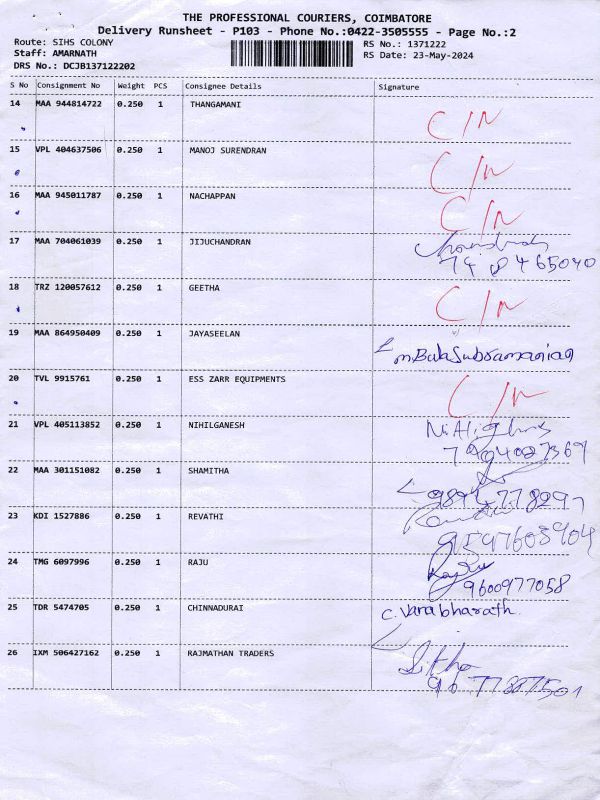 THE PROFESSIONAL COURIERS, COIMBATORE
Delivery Runsheet - P103 - Phone No.:0422-3505555 - Page No.:2
Route: SIHS COLONY
Staff: AMARNATH
DRS No.: DCJB137122202
RS No.: 1371222
RS Date: 23-May-2024
S No Consignment No Weight PCS Consignee Details Signature
14 MAA 944814722 0.250 1 THANGAMANI C/N
15 VPL 404637506 0.250 1 MANOJ SURENDRAN C/N
16 MAA 945011787 0.250 1 NACHAPPAN C/N
17 MAA 704061039 0.250 1 JIJUCHANDRAN
18 TRZ 120057612 0.250 1 GEETHA C/N
19 MAA 864950409 0.250 1 JAYASEELAN m BalaSubramanian
20 TVL 9915761 0.250 1 ESS ZARR EQUIPMENTS C/N
21 VPL 405113852 0.250 1 NIHILGANESH
22 MAA 301151082 0.250 1 SHAMITHA
23 KDI 1527886 0.250 1 REVATHI
9597603904
24 TMG 6097996 0.250 1 RAJU Raju
9600977058
25 TDR 5474705 0.250 1 CHINNADURAI C. Varabharath
26 IXM 506427162 0.250 1 RAJMATHAN TRADERS